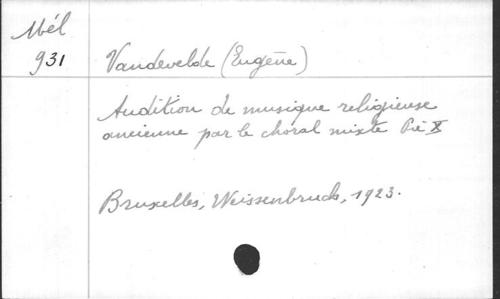 Mél
931 Vandevelde (Eugène)
Audition de musique religieuse
ancienne par le choral mixte Pie X
Bruxelles, Weissenbruch, 1923.